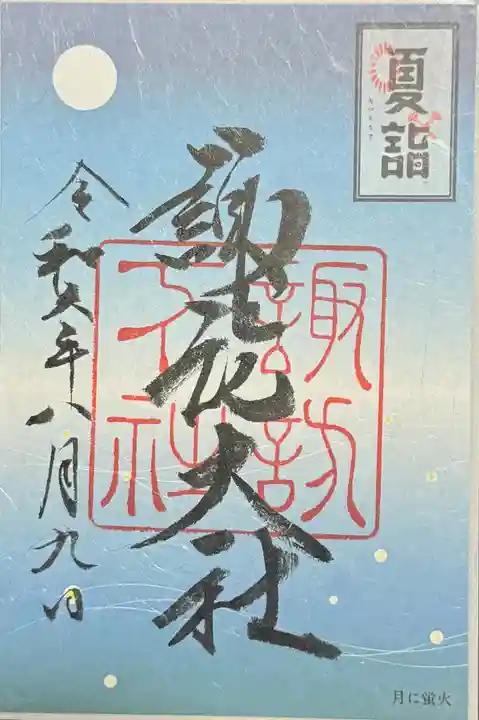 夏詣
諏訪大社
諏訪
大社
令和六年八月九日
月に螢火